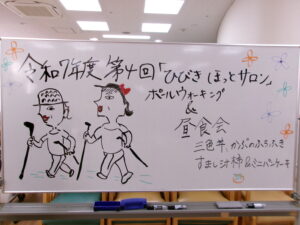 令和7年度 第4回「ひびきほっとサロン」
ポールウォーキング
&
昼食会
三色丼、かぶのふろふき
すまし汁、柿&ミニパンケーキ